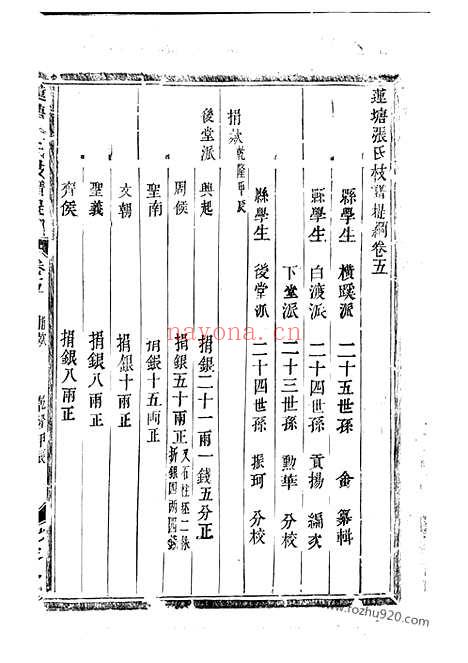 蓮塘張氏枝譜提綱卷五
縣學生 橫蹊派 二十五世孫 金 纂輯
縣學生 白渡派 二十四世孫 貢揚 編次
下堂派 二十三世孫 勲華 分校
縣學生 後堂派 二十四世孫 振珂 分校
捐欵乾隆甲辰
後堂派 興起 捐銀二十一兩一錢五分正
周候 捐銀五十兩正又石柱一
折銀四兩四錢
聖南 捐銀十五両正
文朝 捐銀十兩正
聖義 捐銀八兩正
齊侯 捐銀八兩正
nayona.cn
www.fozhu920.com